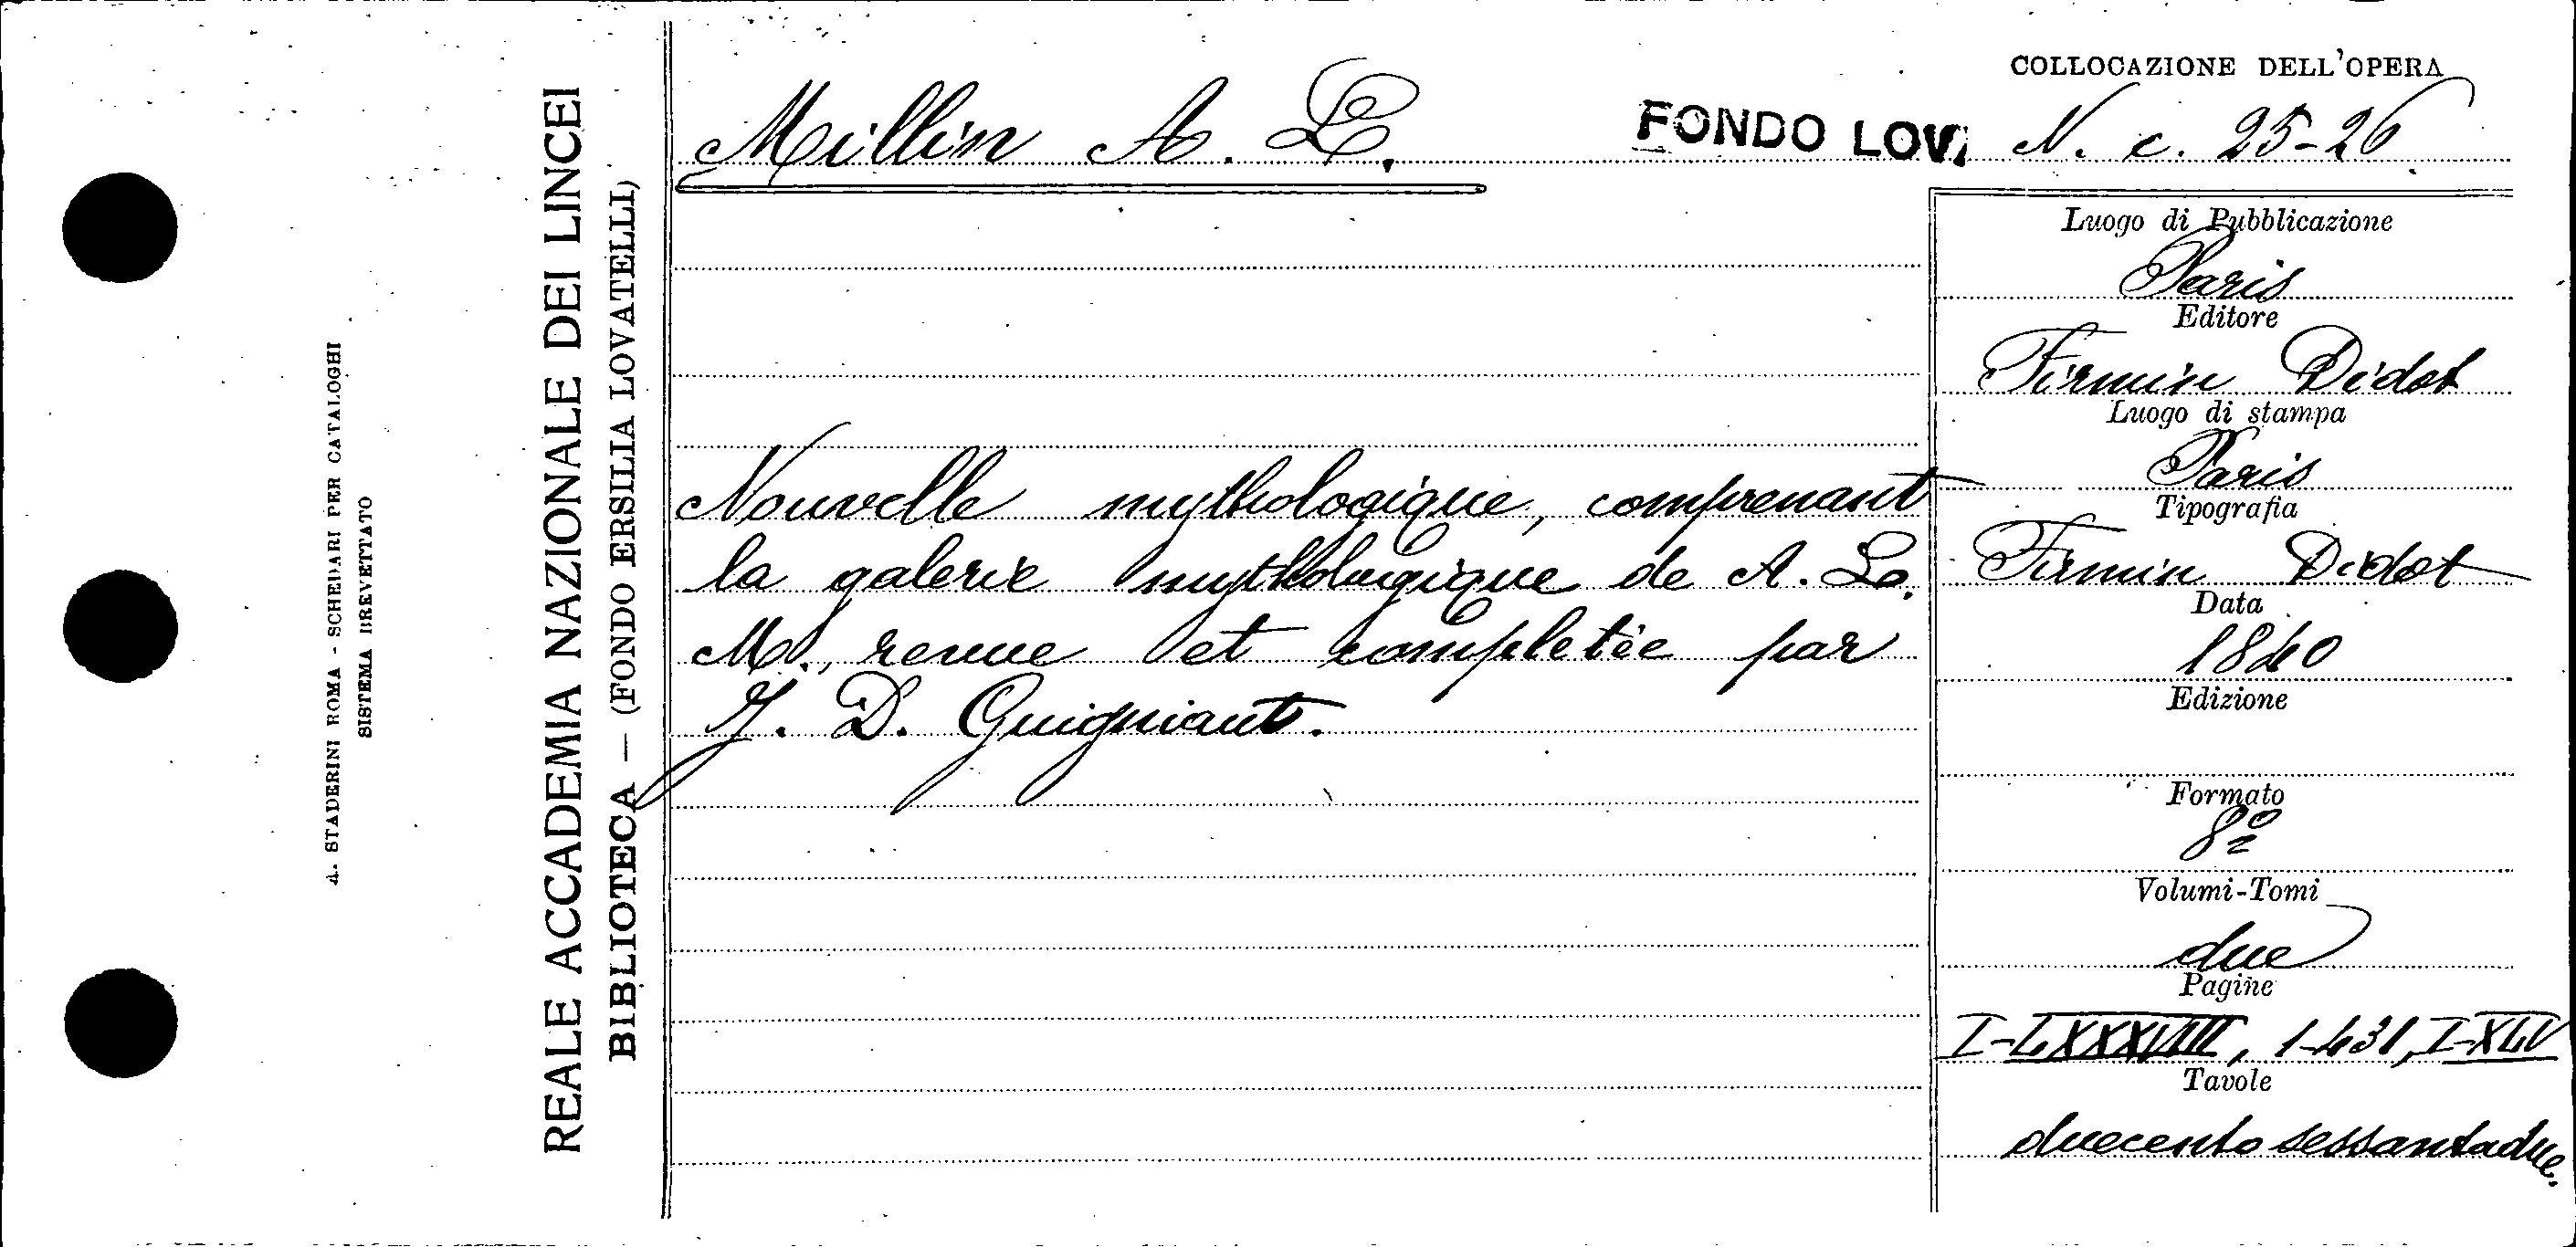 A. STADERINI ROMA - SCHEDARI PER CATALOGHI
SISTEMA BREVETTATO
REALE ACCADEMIA NAZIONALE DEI LINCEI
BIBLIOTECA — (FONDO ERSILIA LOVATELLI)
Millin A. L.
FONDO LOV.
COLLOCAZIONE DELL'OPERA
N. c. 25-26
Nouvelle mythologique, comprenant
la galerie mythologique de A. L.
M., revue et completée par
J. D. Guigniaut.
Luogo di Pubblicazione
Paris
Editore
Firmin Didot
Luogo di stampa
Paris
Tipografia
Firmin Didot
Data
1840
Edizione
Formato
8º
Volumi-Tomi
due
Pagine
I-LXXXVIII, 1-431, I-XLV
Tavole
duecento sessantadue.